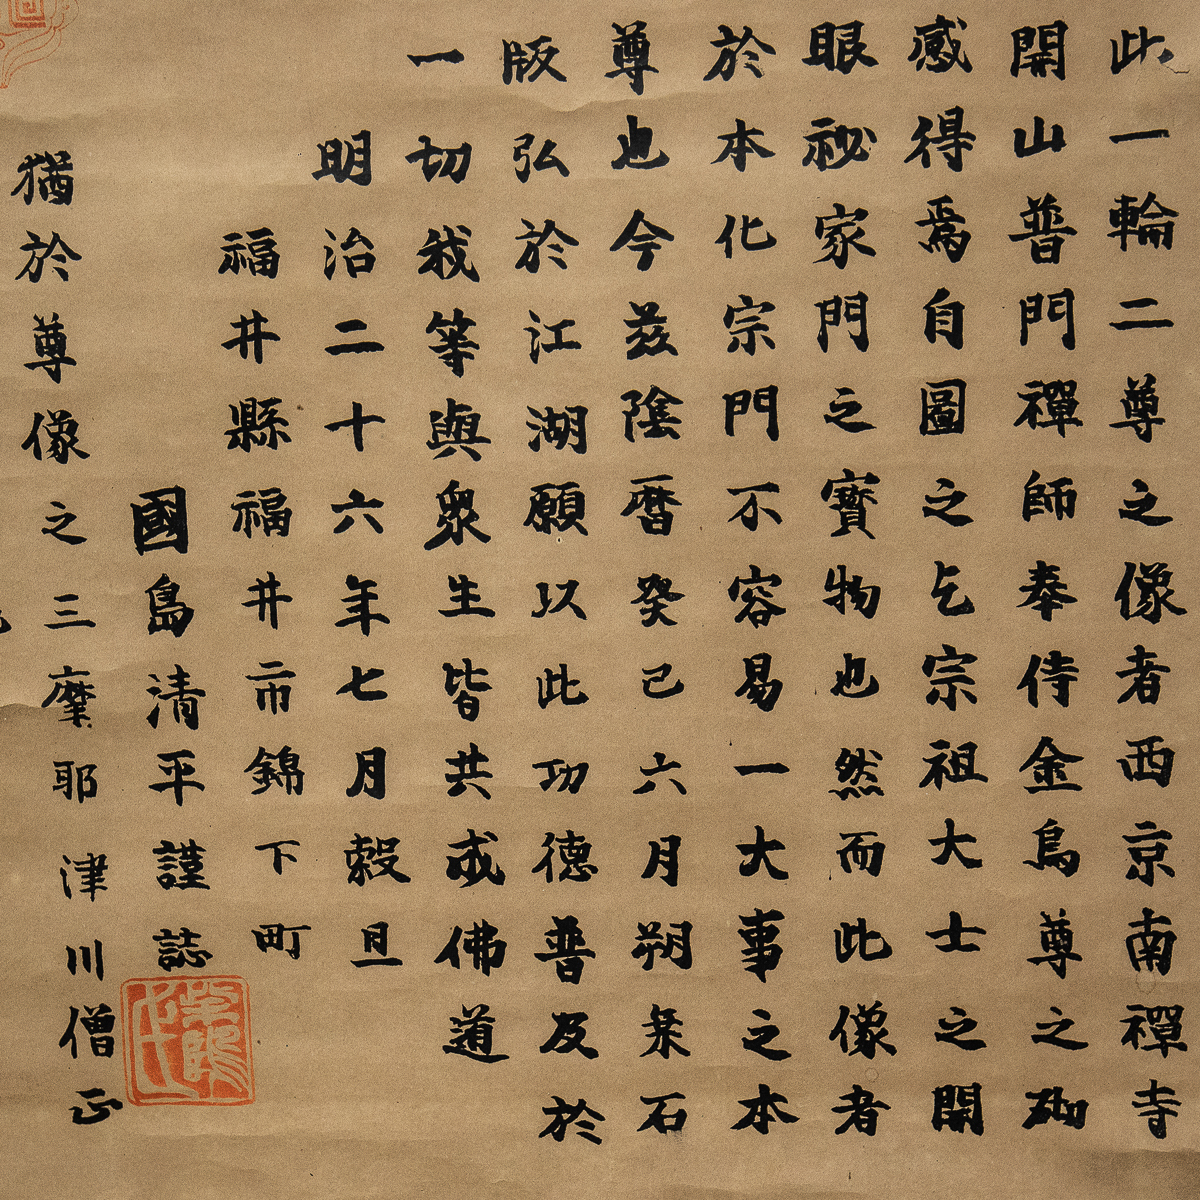 此一輪二尊之像者西京南禪寺
開山普門禪師奉侍金烏尊之砌
感得焉自圖之乞宗祖大士之開
眼祕家門之寶物也然而此像者
於本化宗門不容易一大事之本
尊也今茲陰曆癸巳六月朔栞石
版弘於江湖願以此功德普及於
一切我等與衆生皆共成佛道
明治二十六年七月穀旦
福井縣福井市錦下町
國島清平謹誌
猶於尊像之三摩耶津川僧正